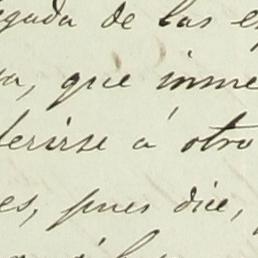 gada de las es
a, que inme
ferirse á otro
es, pues dice,